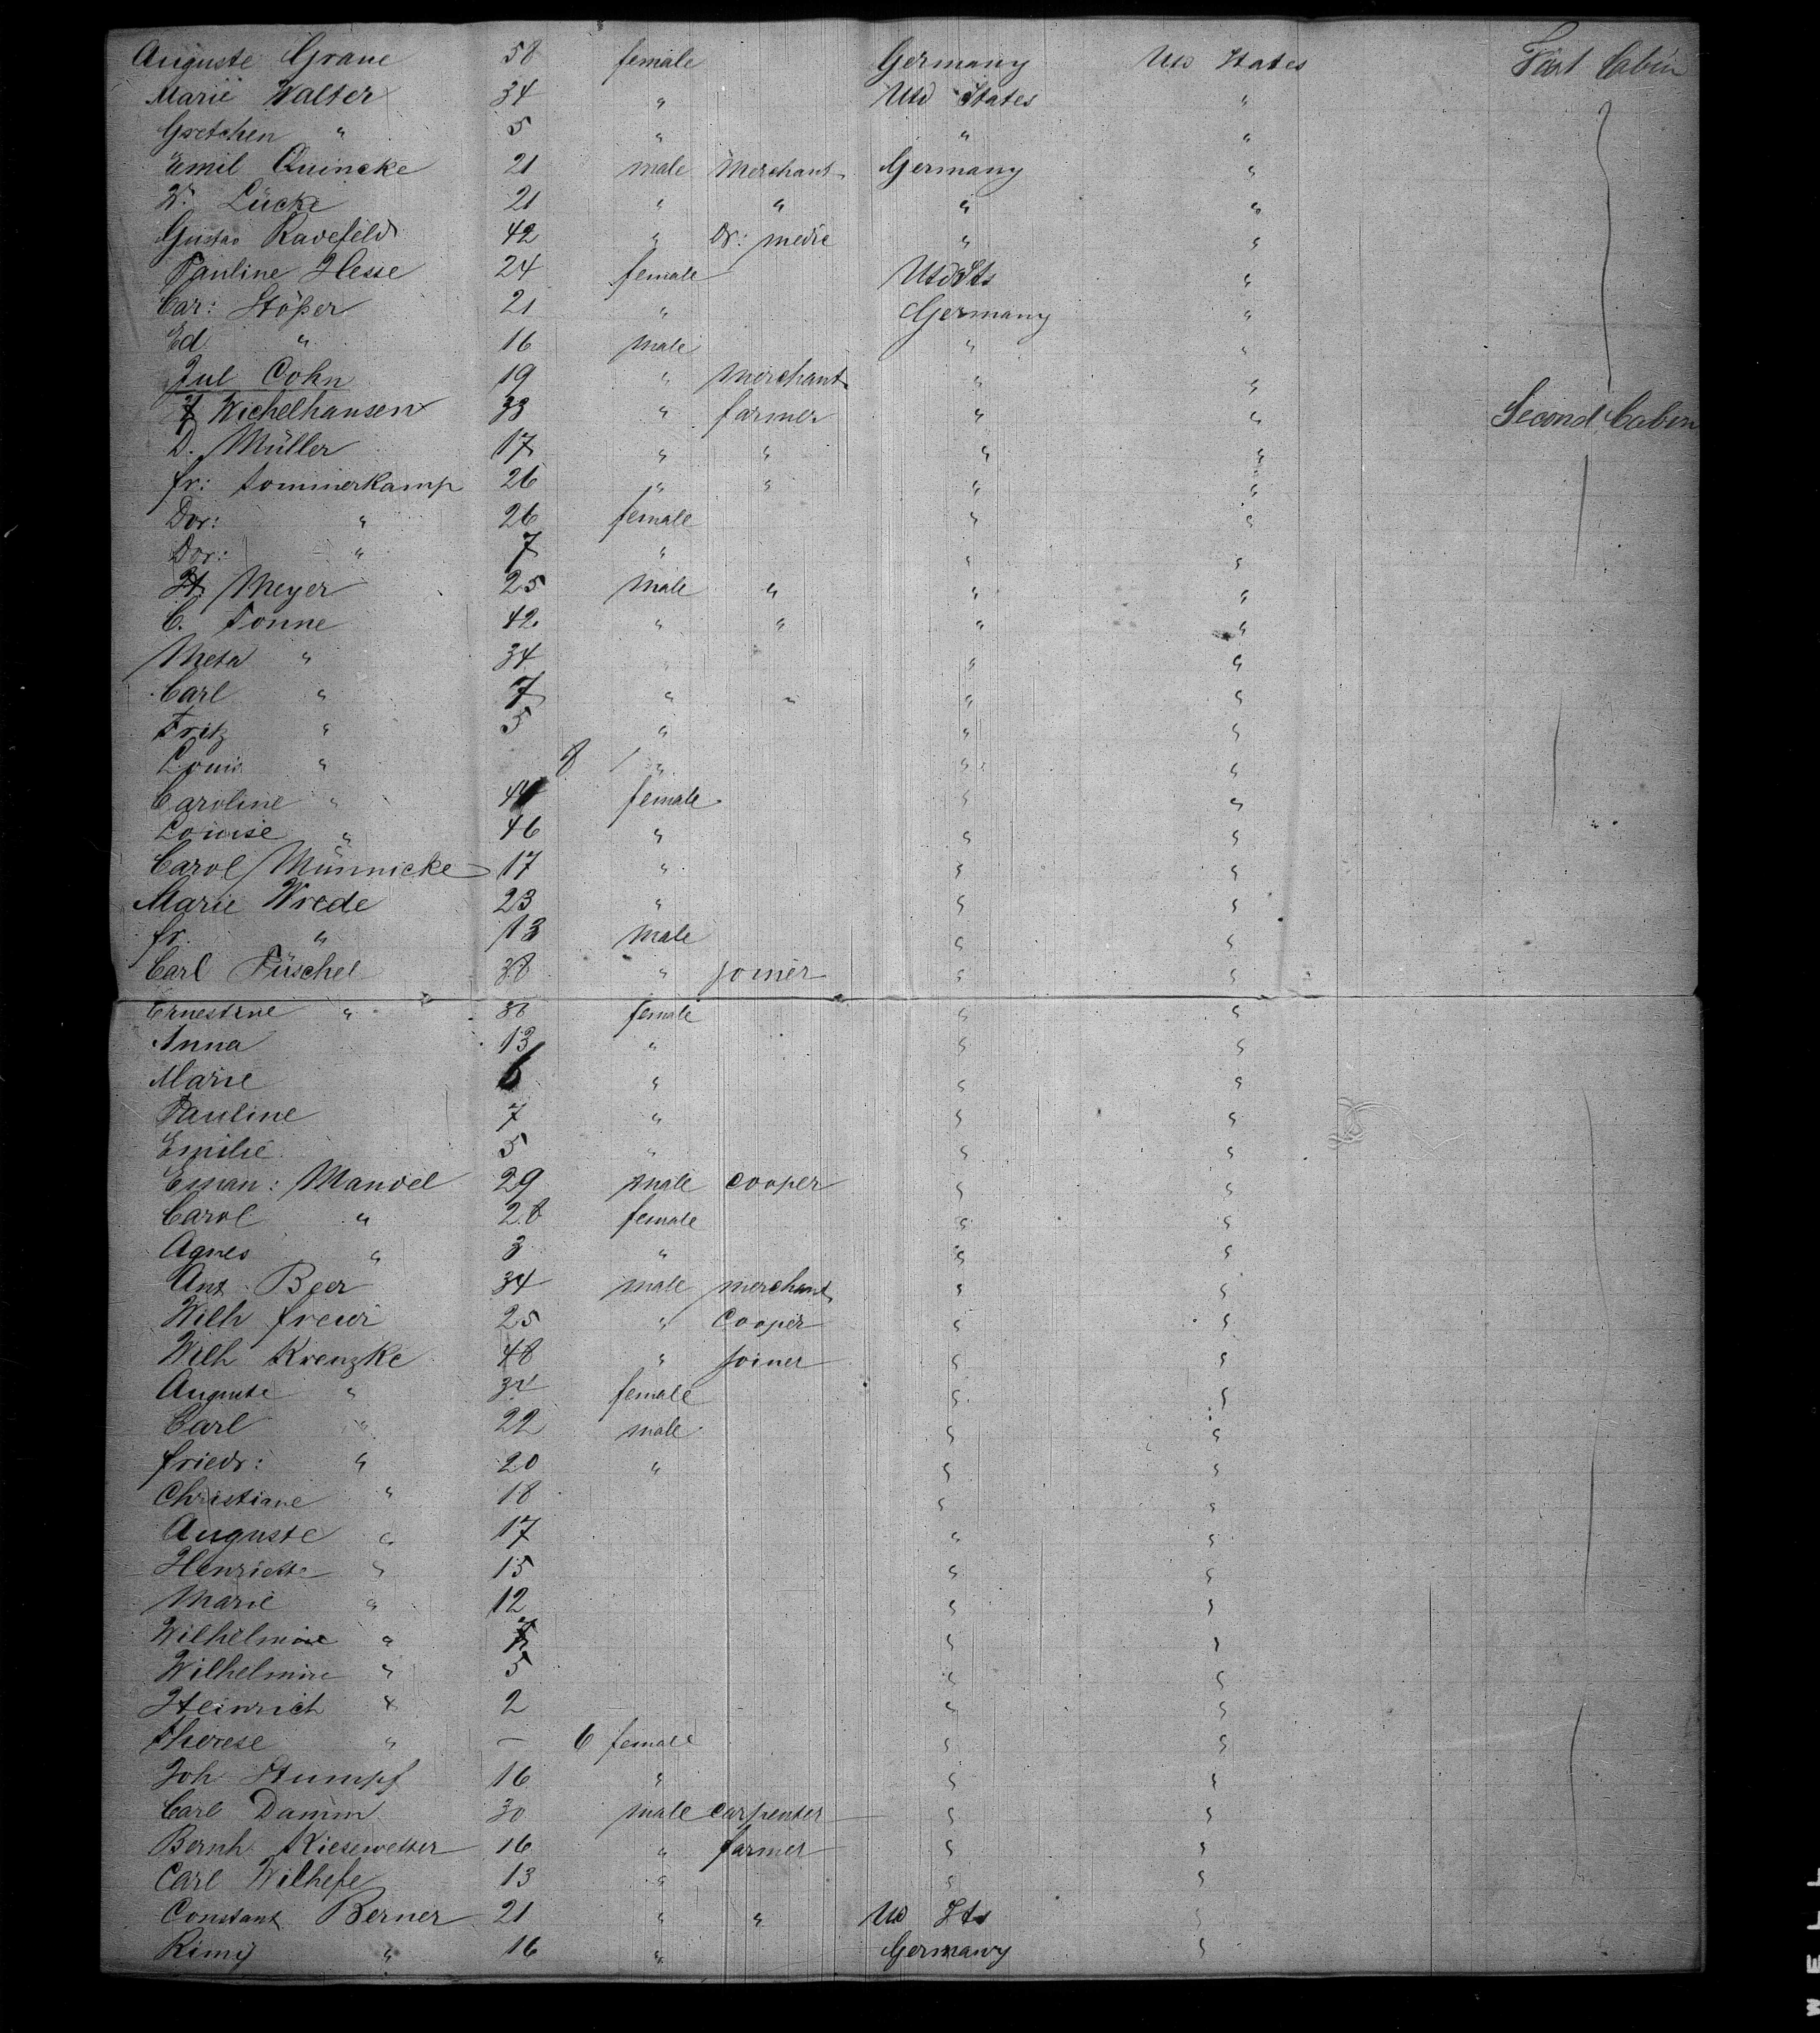 Auguste Graue 58 female Germany Utd States First Cabin
Marie Walter 34 " Utd States "
Gretchen " 5 " " "
Emil Quincke 21 male Merchant Germany "
Lücke 21 " " " "
Gustav Ravefeld 42 " Dr: medic " "
Pauline Hesse 24 female Utd Sts "
Car: Stößer 21 " Germany "
Ed " 16 male " "
Jul Cohn 19 " merchant " "
Wichelhausen 33 " farmer " " Second Cabin
D. Müller 17 " " " "
fr: Sommerkamp 26 " " " "
Dor: " 26 female " "
Dor: " 7 " " "
H Meyer 25 male " " "
C. Tonne 42 " " " "
Meta " 34 " "
Carl " 7 " " " "
Fritz " 5 " " "
Louis " 8 " " "
Caroline " female " "
Louise " 46 " " "
Carol Münnicke 17 " " "
Marie Wrede 23 " " "
fr. " 13 male " "
Carl Füschel 38 " joiner " "
Ernestine " 38 female " "
Anna 13 " " "
Marie 6 " " "
Pauline 7 " " "
Emilie 5 " " "
Eman: Mandel 29 male cooper " "
Carol " 28 female " "
Agnes " 3 " " "
Ant Beer 34 male merchant " "
Wilh 25 " Cooper " "
Wilh Krenzke 48 " joiner " "
Auguste " 34 female " "
Carl " 22 male " "
friedr: " 20 " " "
Christiane " 18 " "
Auguste " 17 " "
Henriette " 15 " "
Marie " 12 " "
Wilhelmine " " "
Wilhelmine " 5 " "
Heinrich " 2 " "
Therese " — 6 female " "
Joh Stumpf 16 " " "
Carl Damm 30 male carpenter " "
Bernh Kiesewetter 16 " farmer " "
Carl 13 " " "
Constant Berner 21 " " Ud Sts "
Rimy " 16 " Germany "
WELL